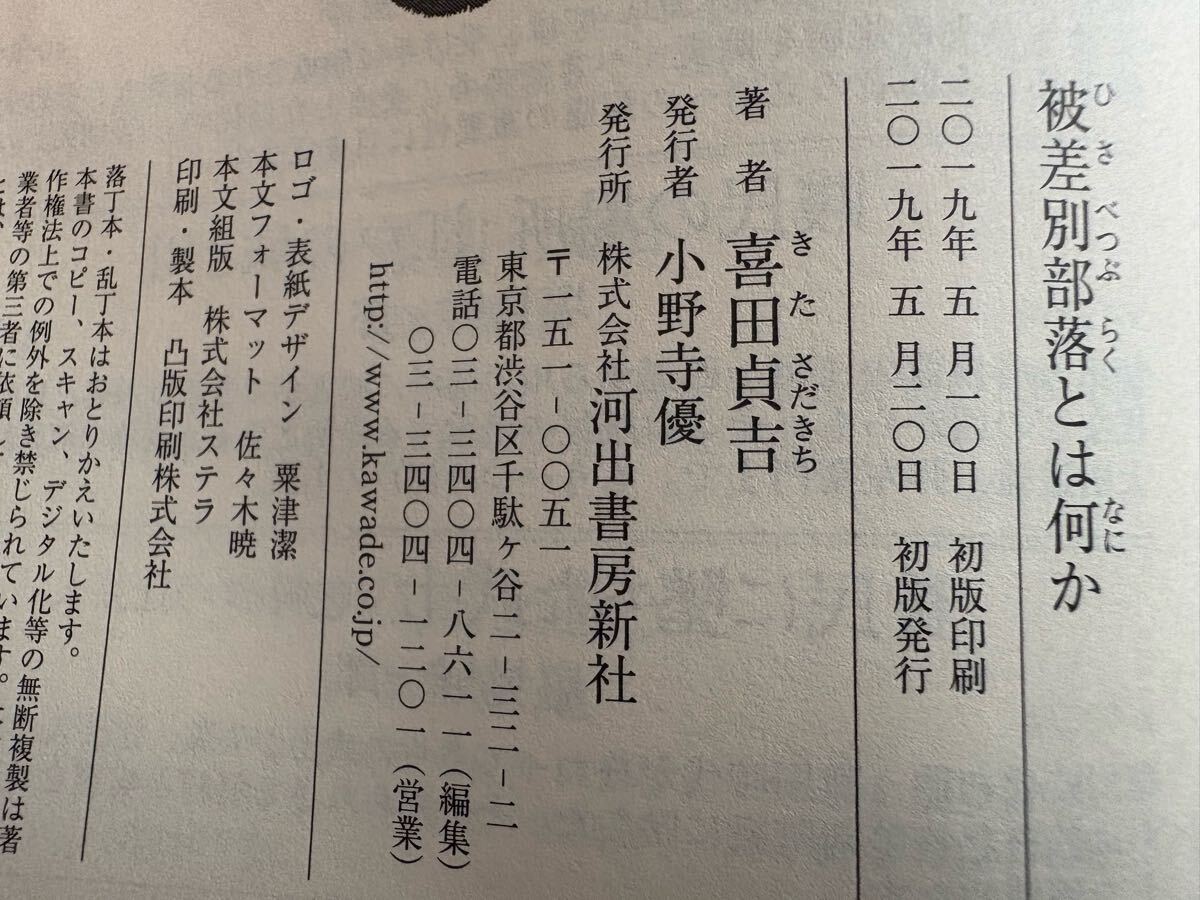 被差別部落とは何か
ひさべつぶらく なに
二〇一九年 五 月一〇日 初版印刷
二〇一九年 五 月二〇日 初版発行
著 者 喜田貞吉
きたさだきち
発行者 小野寺優
発行所 株式会社河出書房新社
〒一五一-〇〇五一
東京都渋谷区千駄ヶ谷二-三二-二
電話〇三-三四〇四-八六一一(編集)
〇三-三四〇四-一二〇一(営業)
http://www.kawade.co.jp/
ロゴ・表紙デザイン 粟津潔
本文フォーマット 佐々木暁
本文組版 株式会社ステラ
印刷・製本 凸版印刷株式会社
落丁本・乱丁本はおとりかえいたします。
本書のコピー、スキャン、デジタル化等の無断複製は著
作権法上での例外を除き禁じられています。
業者等の第三者に依頼し